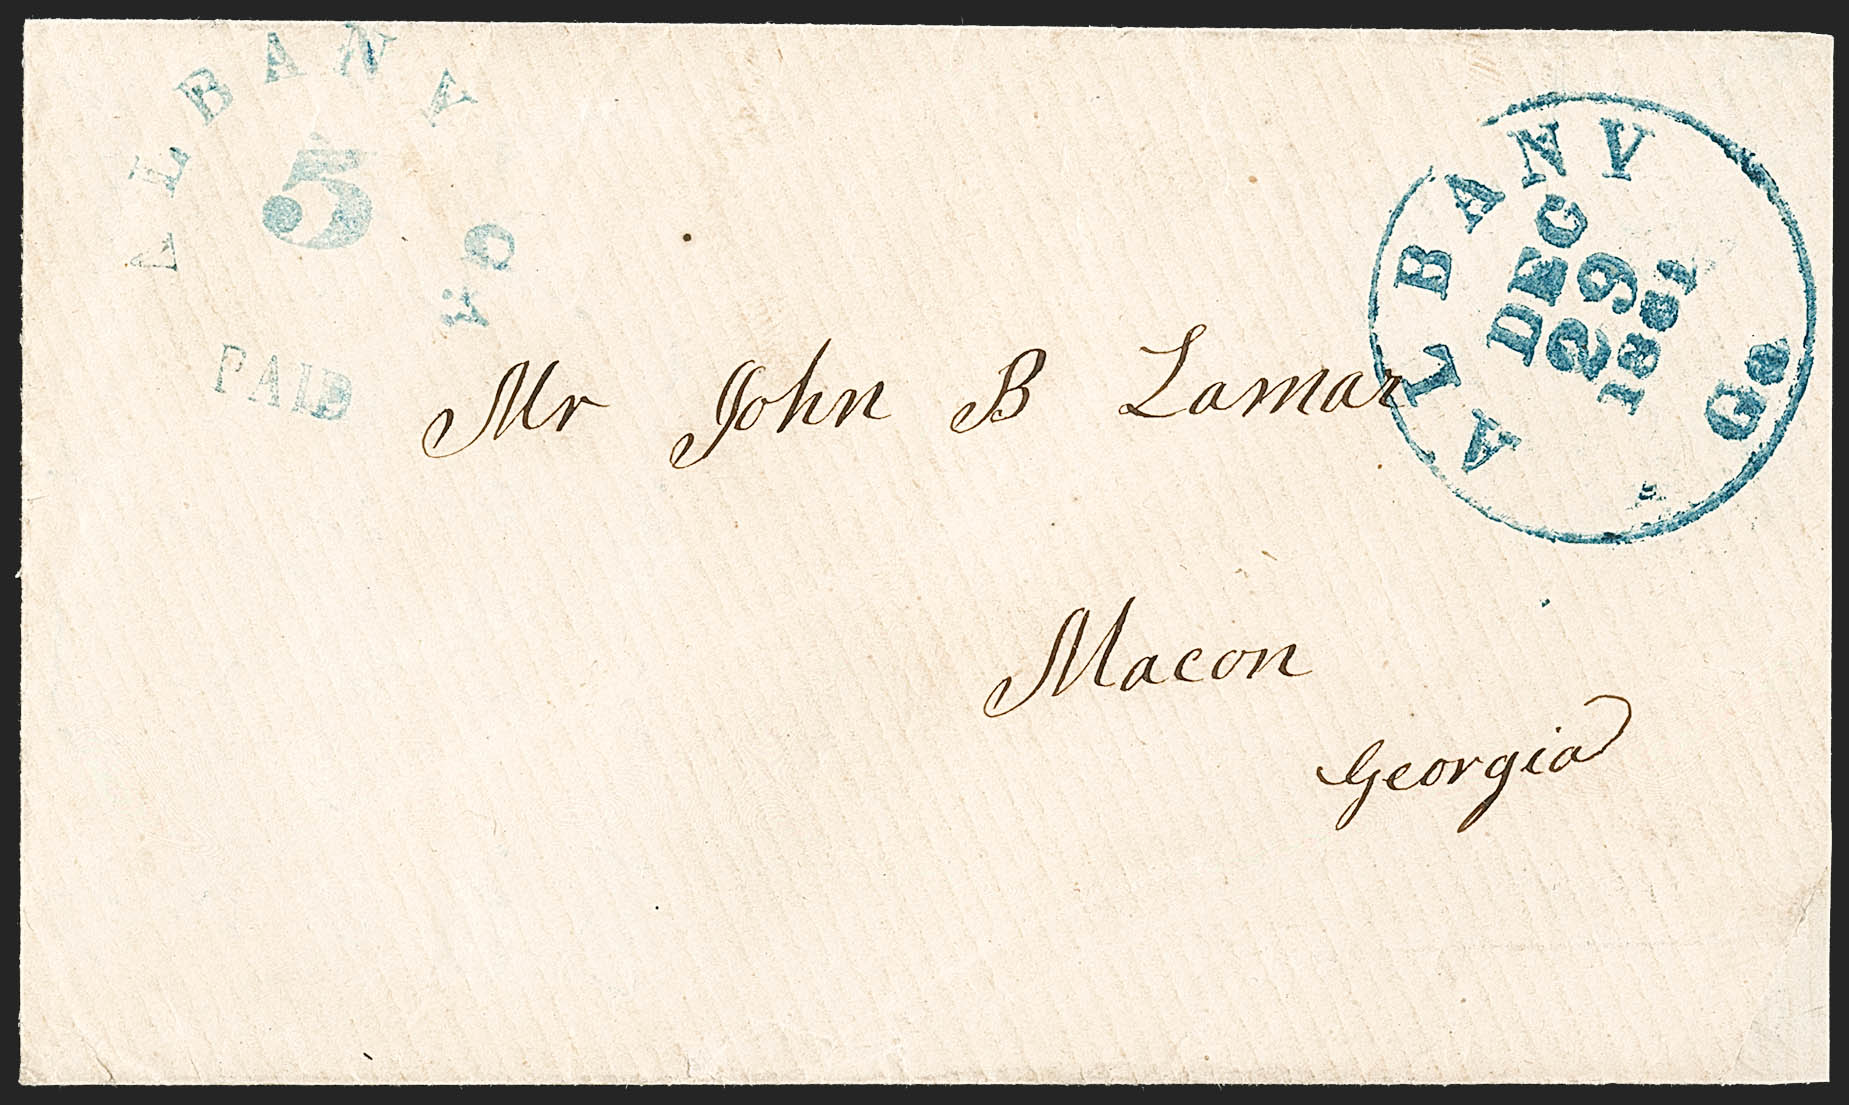 ALBANY Ga
5
PAID
ALBANY Ga
DEC
29
1861
Mr John B Lamar
Macon
Georgia